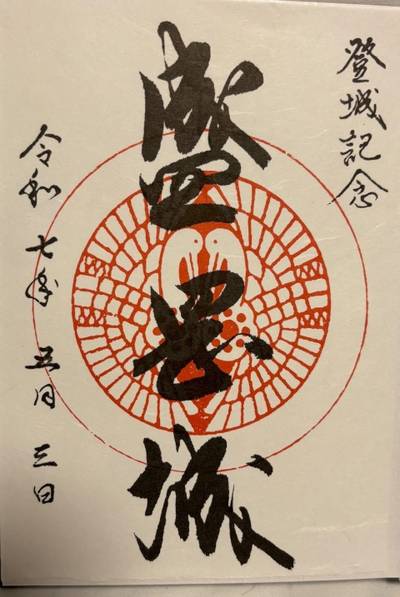 登城記念
盛岡城
令和七年五月三日